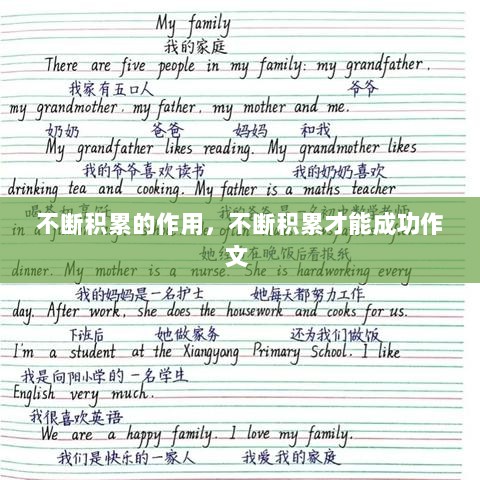 My family
我的家庭
There are five people in my family: my grandfather,
我家有五口人 爷爷
my grandmother, my father, my mother and me.
奶奶 爸爸 妈妈 和我
My grandfather likes reading. My grandmother likes
我的爷爷喜欢读书 我的奶奶喜欢
drinking tea and cooking. My father is a maths teacher
不断积累的作用，不断积累才能成功作
她 在晚饭后看报纸
文
dinner. My mother is a nurse. She is hardworking every
我的妈妈是一名护士 她每天都努力工作
day. After work, she does the housework and cooks for us.
下班后 她做家务 还为我们做饭
I'm a student at the Xiangyang Primary School. I like
我是向阳小学的一名学生
English very much.
我很喜欢英语
We are a happy family. I love my family.
我们是快乐的一家人 我爱我的家庭